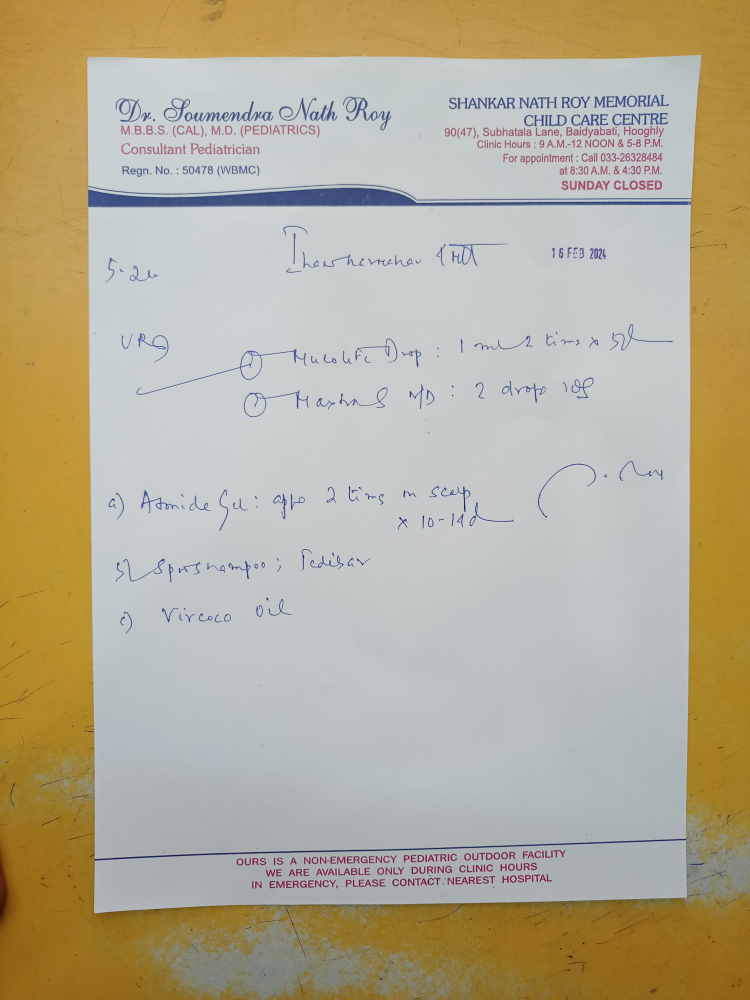 Dr. Soumendra Nath Roy
M.B.B.S. (CAL), M.D. (PEDIATRICS)
Consultant Pediatrician
Regn. No. : 50478 (WBMC)
SHANKAR NATH ROY MEMORIAL
CHILD CARE CENTRE
90(47), Subhatala Lane, Baidyabati, Hooghly
Clinic Hours : 9 A.M.-12 NOON & 5-8 P.M.
For appointment : Call 033-26328484
at 8:30 A.M. & 4:30 P.M.
SUNDAY CLOSED
16 FEB 2024
① Drop : 1 ml 2 times x 5d
② N/D : 2 drops
a) Gel : 2 times on scalp
x 10-14d
c) Vircoco oil
OURS IS A NON-EMERGENCY PEDIATRIC OUTDOOR FACILITY
WE ARE AVAILABLE ONLY DURING CLINIC HOURS
IN EMERGENCY, PLEASE CONTACT NEAREST HOSPITAL